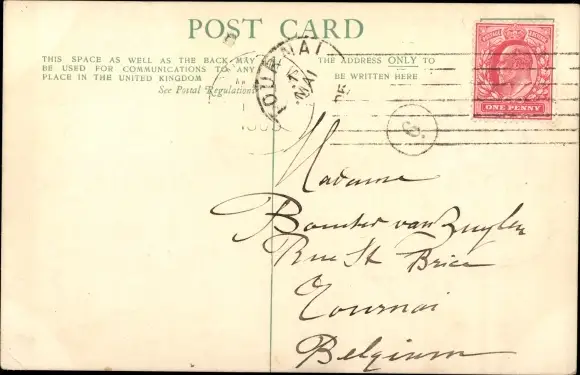 POST CARD
THIS SPACE AS WELL AS THE BACK MAY
BE USED FOR COMMUNICATIONS TO ANY
PLACE IN THE UNITED KINGDOM
See Postal Regulation
THE ADDRESS ONLY TO
BE WRITTEN HERE
TOURNAI
MAI
ONE PENNY
Madame
van Zuylen
Rue St Brice
Tournai
Belgium